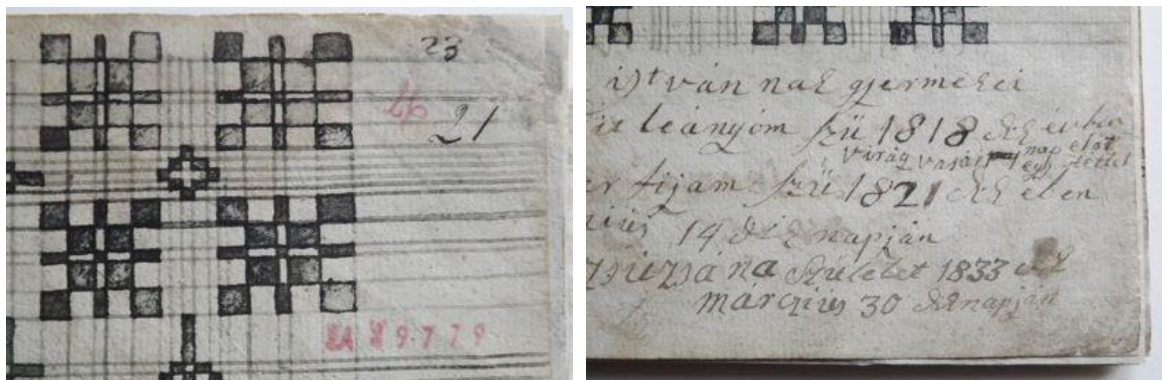 23
46
21
EA 9779
istván nak gjermekei
leányom szü 1818 dik évben
virág vasárnap előt
egy hettel
fijam szü 1821 dik eben
14 dik napján
zsuzsána Született 1833 dik
márczius 30 dik napján